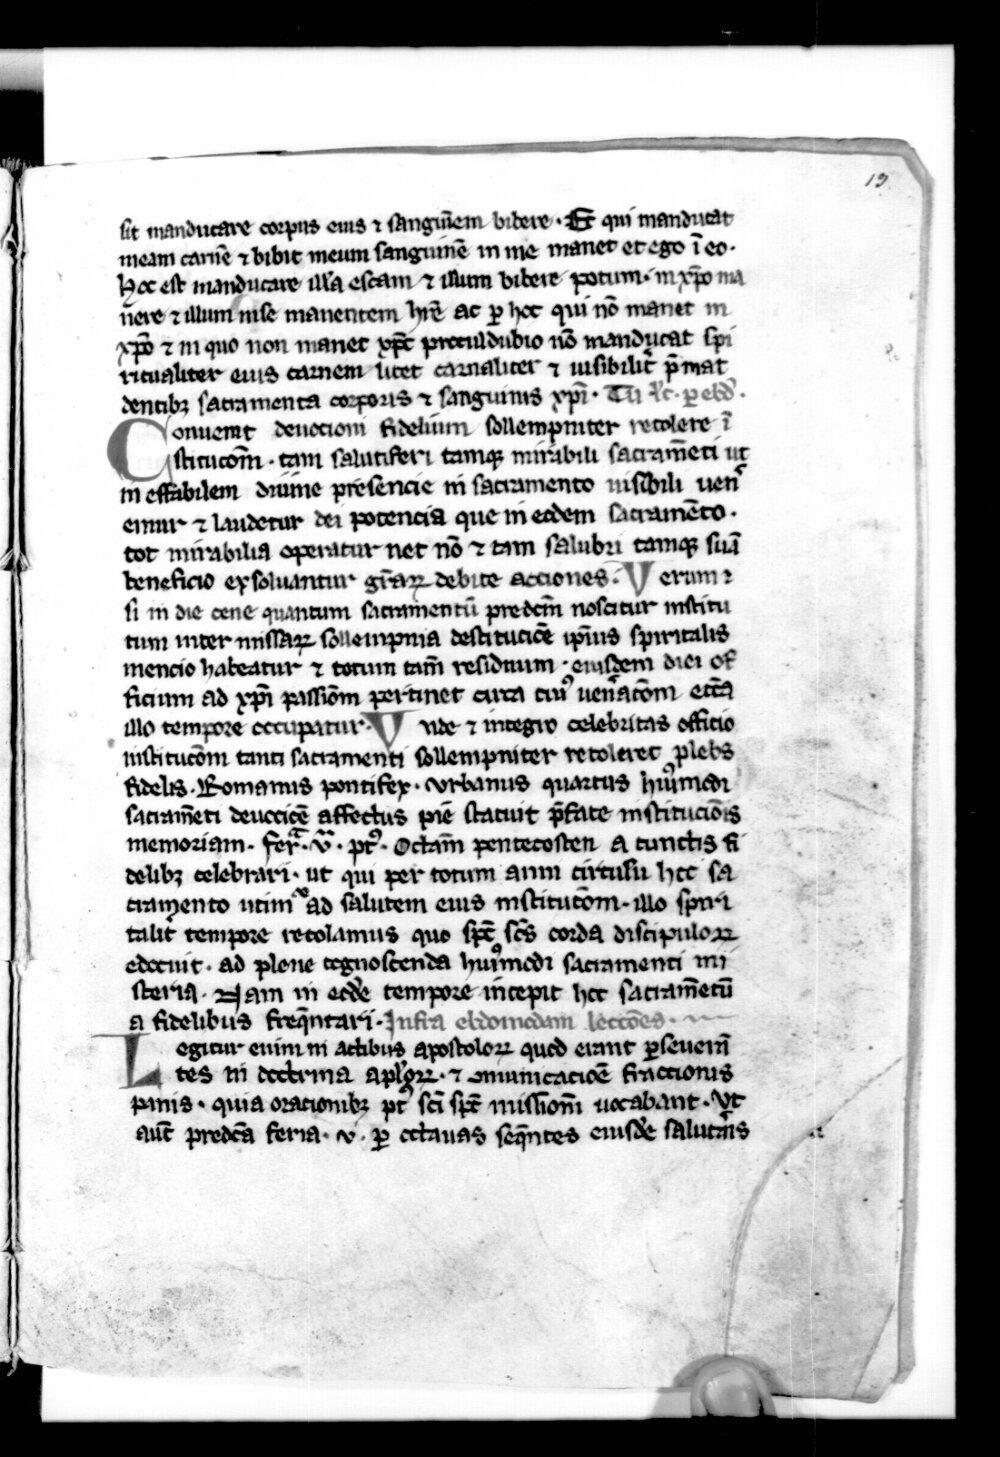 13
sit manducare corpus eius ⁊ sanguinem bibere · Et qui manducat
meam carnē ⁊ bibit meum sanguinē in me manet et ego ī eo ·
Hoc est manducare illā escam ⁊ illum bibere potum · in xp̄o ma
nere ⁊ illum in se manentem hr̄e ac ꝑ hoc qui nō manet in
xp̄o ⁊ in quo non manet xp̄c proculdubio nō manducat spi
ritualiter eius carnem licet carnaliter ⁊ uisibilit̄ p̄mat
dentibꝫ sacramenta corporis ⁊ sanguinis xp̄i ·
Conuenit deuotioni fidelium sollempniter recolere ī
stitucōm · tam salutiferi tamqꝫ mirabili sacram̄eti ut
in effabilem diuine presencie in sacramento uisibili uen̄
emur ⁊ laudetur dei potencia que in eodem sacramēto ·
tot mirabilia operatur nec nō ⁊ tam salubri tamqꝫ suaui
beneficio exsoluantur gr̄aꝝ debite acciones · Verum ⁊
si in die cene quantum sacramentū predcm̄ noscitur institu
tum inter missaꝝ sollempnia de stitucōe ip̄ius spiritalis
mencio habeatur ⁊ totum tam̄ residuum · eiusdem diei of
ficium ad xp̄i passiōm pertinet circa cuiꝰ uen̄acōm ecc̄a
illo tempore occupatur · Vnde ⁊ integro celebritas officio
institucōm tanti sacramenti sollempniter recoleret plebs
fidelis · Romanus pontifex · urbanus quartus huiꝰmodi
sacram̄eti deuocōe affectus pie statuit p̄fate institucionis
memoriam · fer̄ · v̄ · pꝰ · octam̄ pentecosten a cunctis fi
delibꝫ celebrari · ut qui per totum anni circulū hoc sa
cramento utimꝰ ad salutem eius institucōm · illo spiri
talit̄ tempore recolamus quo sp̄c sc̄s corda discipuloꝝ
edocuit · ad plene cognoscenda huiꝰmodi sacramenti mi
steria · Nam in eodē tempore incepit hoc sacram̄etū
a fidelibus freq̄ntari · Infra ebdomedam lecc̄oēs ·
Legitur enim in actibus apostoloꝝ quod erant ꝑseueran
tes in doctrina apl'oꝝ · ⁊ ꝯmunicacioē fractionis
panis · quia oracionibꝫ pꝰ sc̄i sp̄c missiom̄ uocabant · Vt
aut̄ predc̄a feria · v · ꝑ octauas seq̄ntes eiusdē salutāris